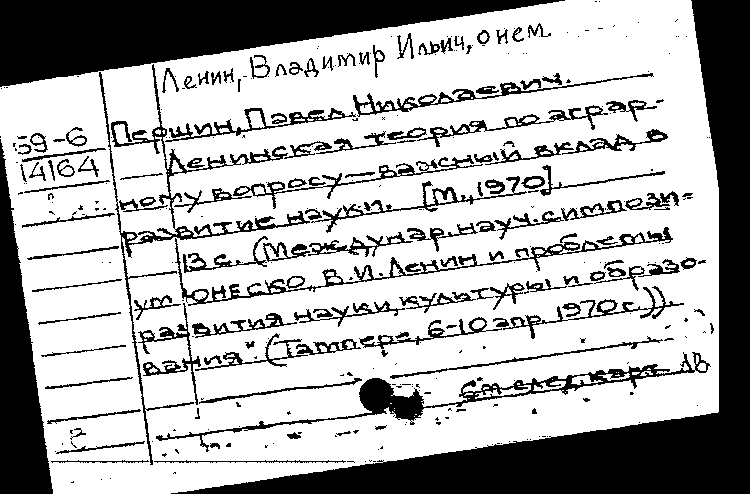 Ленин, Владимир Ильич, о нем.
59-6
14164
Першин, Павел Николаевич.
Ленинская теория по аграр-
ному вопросу — важный вклад в
развитие науки. [М., 1970].
13 с. (Междунар. науч. симпози-
ум ЮНЕСКО „В.И. Ленин и проблемы
развития науки, культуры и образо-
вания". (Тампере, 6-10 апр. 1970 г.)).
См след. карт